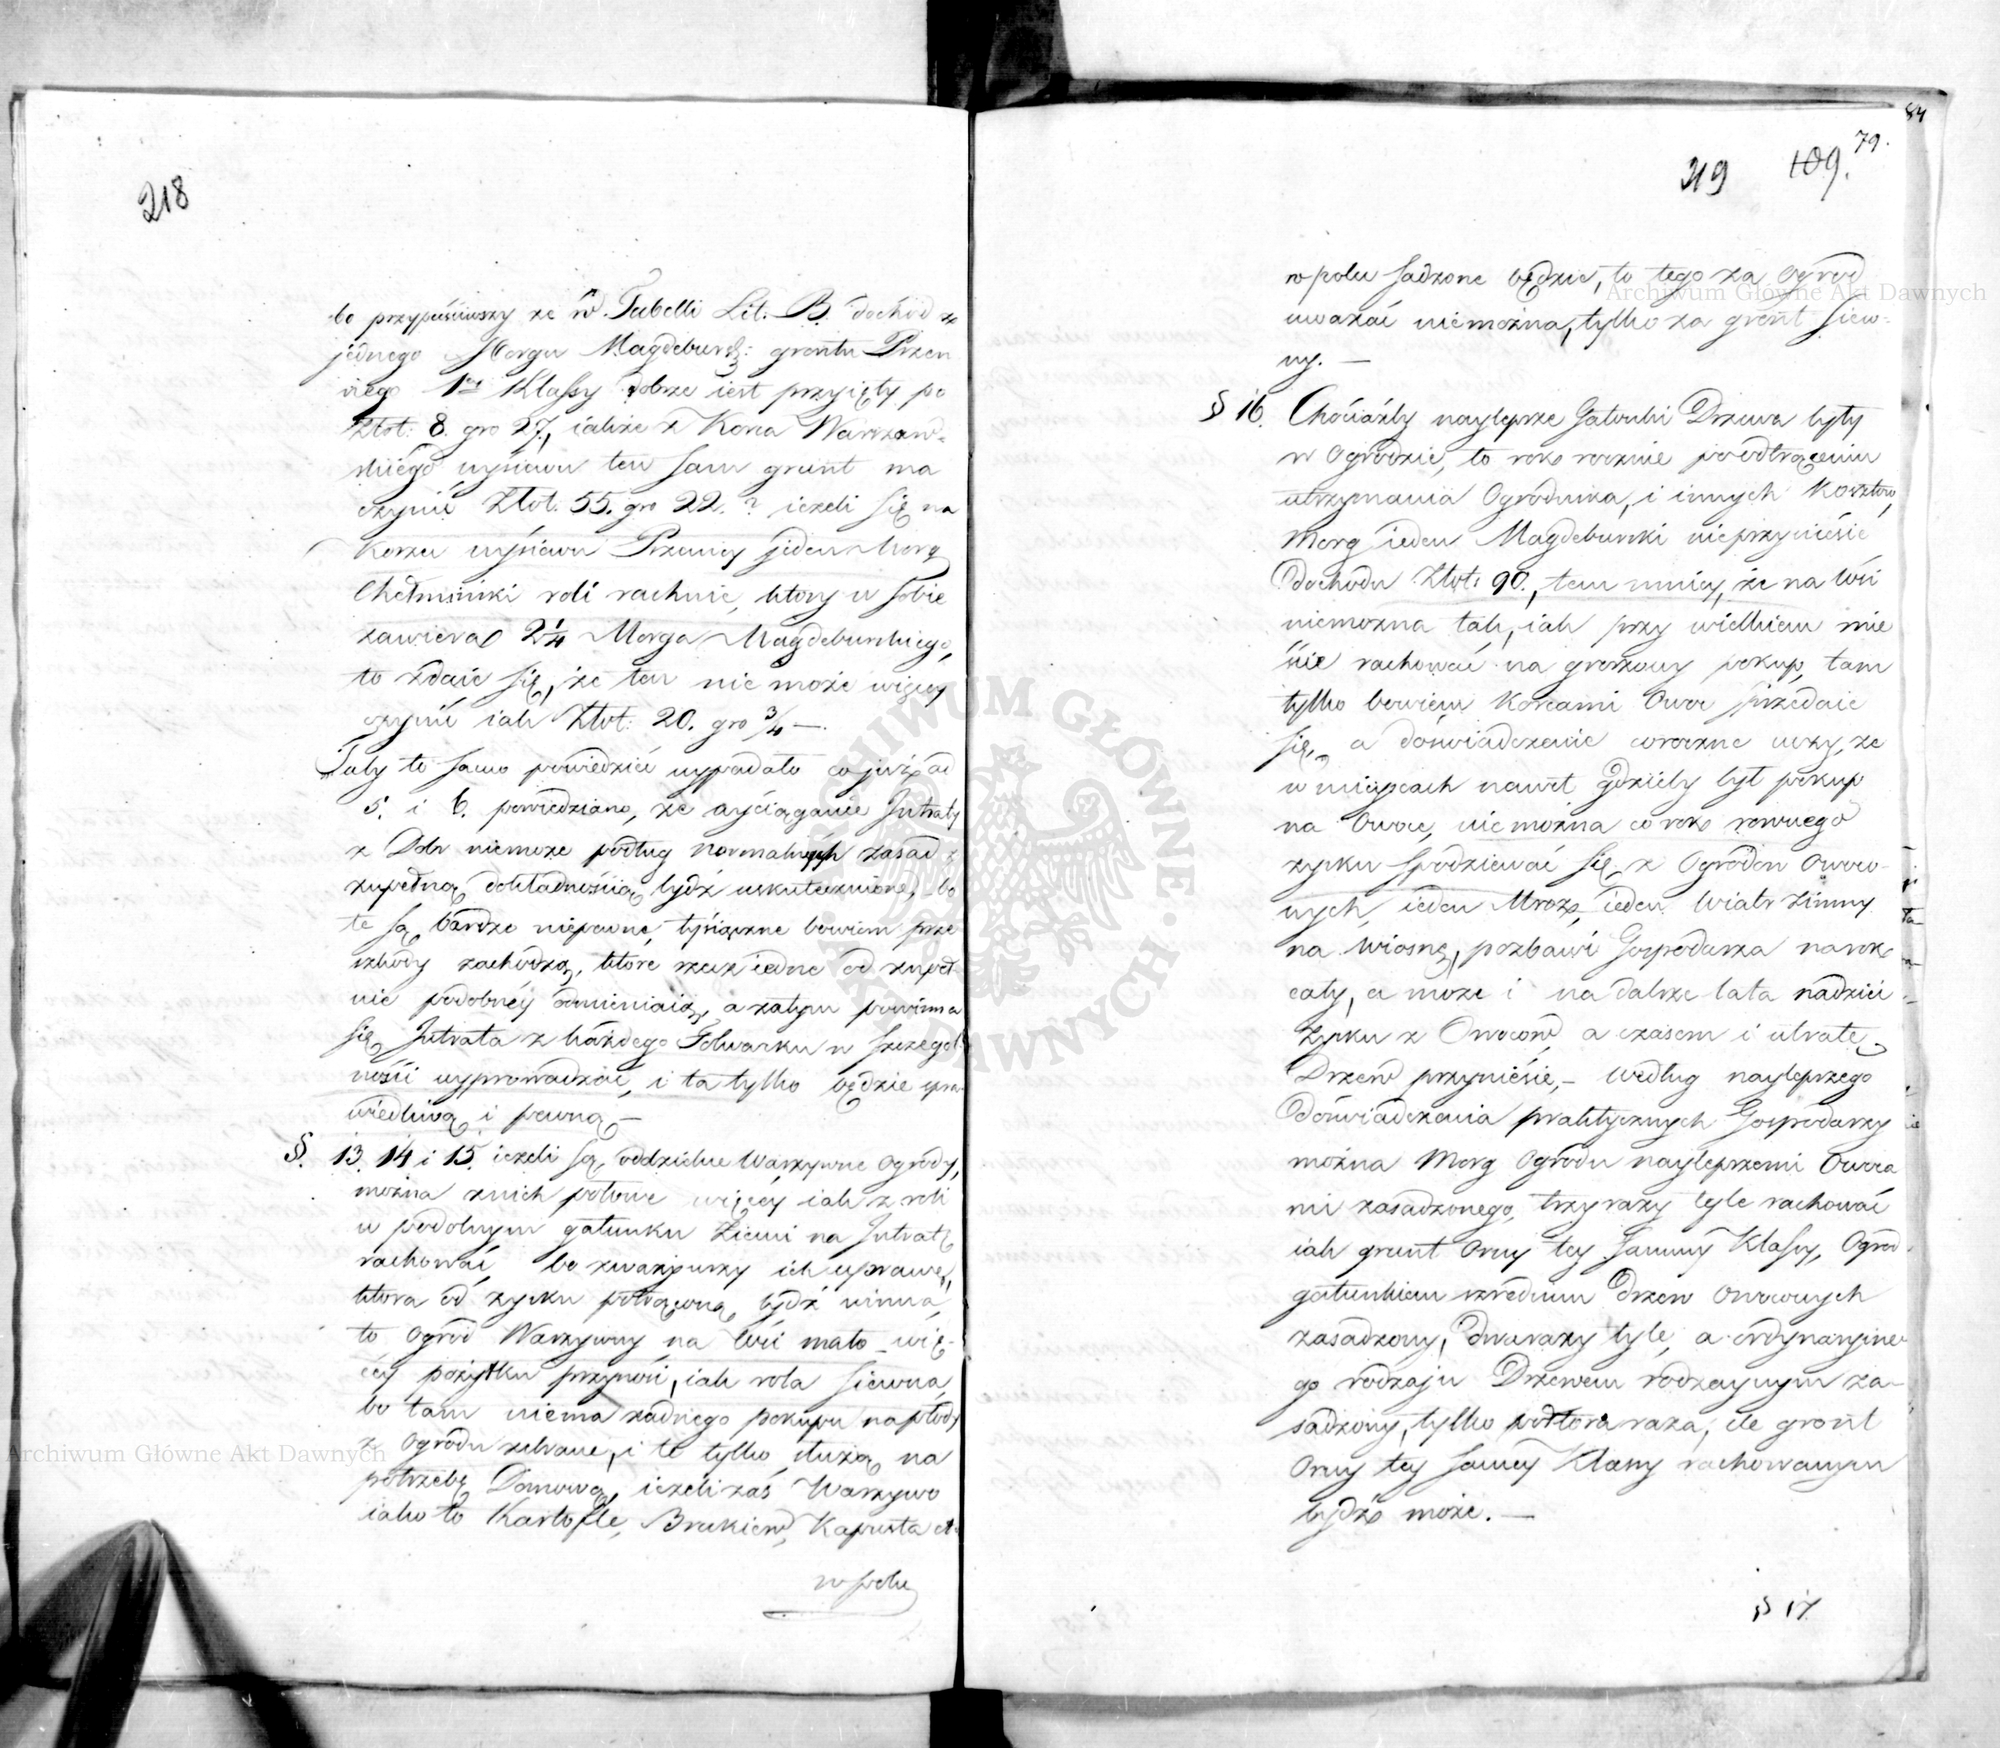 218
bo przypuściwszy że w Tabelli Lit. B. dochód z
jednego Morgu Magdeburs: grontu Przen
nego 1ey Klassy dobrze iest przyięty po
Złot: 8. gro 27., iakże z Korca Warszaw-
skiégo wysiewu ten sam grunt ma
czynić Złot. 55. gro 22. ? ieżeli się na
Korzec wysiewu Przenicy jeden Morg
Chełmiński roli rachuie, ktory w sobie
zawiera 2 1/4 Morga Magdeburskiego,
to zdaie się, że ten nie może więcey
czynić iak Złot: 20. gro 3/4 —
Tuby to samo powiedzieć wypadało co już ad
5. i 6. powiedziano, że wyciąganie Jntraty
z Dobr niemoże podług normalnych zasad z
zupełną dokładnością bydź uskutecznione, bo
te są bardzo niepewne, tysiączne bowiem prze
szkody zachodzą, ktore rzecz iedne od zupeł-
nie podobnéy odmieniaią, a zatym powinna
się Jntrata z każdego Folwarku w szczegol
ności wyprowadzać, i ta tylko będzie spra
wiedliwą i pewną —
§. 13. 14 i 15. ieżeli są oddzielne Warzywne Ogrody,
można z nich połowe więcéy iak z roli
w podobnym gatunku Ziemi na Jntratę
rachować, bo zważywszy ich uprawę,
ktora od zysku potrąconą bydź winna,
to Ogrod Warzywny na Wsi mało wię-
céy pożytku przynosi, iak rola siewna,
bo tam niema żadnego pokupu na płody
z Ogrodu zebrane, i te tylko służą na
potrzebę Domową, ieżeli zaś Warzywo
iako to Kartofle, Brukiew, Kapusta et:
w polu
84
79.
219 109.
w polu sadzone będzie, to tego za Ogrod
uważać niemożna, tylko za gront siew-
ny. —
§ 16. Chociażby naylepsze Gatunki Drzewa były
w Ogrodzie, to rok rocznie po odtrąceniu
utrzymania Ogrodnika, i innych Kosztow,
Morg ieden Magdeburski nieprzyniesie
Dochodu Złot: 90., tem mniey, że na Wsi
niemożna tak, iak przy wielkiem mie
ście rachować na groszowy pokup, tam
tylko bowiem Korcami Owoc przedaie
się, a doświadczenie coroczne uczy, że
w mieyscach nawet gdzieby był pokup
na Owoce, niemożna co rok rownego
zysku spodziewać się z Ogrodow Owoco-
wych, ieden Mroz, ieden Wiatr zimny
na wiosnę, pozbawi Gospodarza na rok
cały, a może i na dalsze lata nadziei
zysku z Owocow, a czasem i utratę
Drzew przyniesie, — według naylepszego
doświadczenia praktycznych Gospodarzy
można Morg Ogrodu naylepszemi Owoca
mi zasadzonego, trzy razy tyle rachować
iak grunt Orny tey samey Klassy, Ogrod
gatunkiem srednim drzew Owocowych
zasadzony, dwa razy tyle, a ordynaryine
go rodzaju Drzewem rodzaynym za-
sadzony, tylko połtora raza, ile gront
Orny tey samey Klassy rachowanym
bydź może. —
§ 17.
Archiwum Główne Akt Dawnych
Archiwum Główne Akt Dawnych
ARCHIWUM GŁÓWNE AKT DAWNYCH